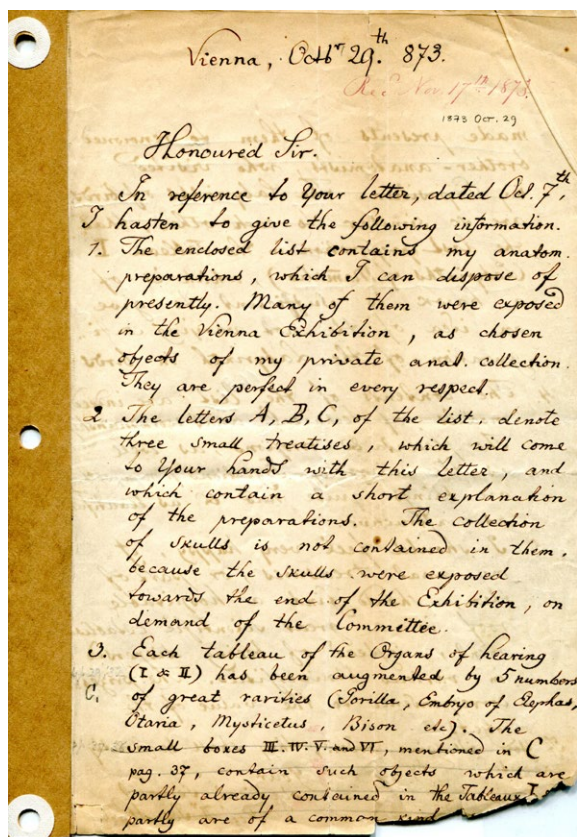 Vienna, Octbr 29th. 873.
Recd Nov. 17th 1873.
1873 Oct. 29
Honoured Sir.
In reference to Your letter, dated Oct. 7th,
I hasten to give the following information.
1. The enclosed list contains my anatom.
preparations, which I can dispose of
presently. Many of them were exposed
in the Vienna Exhibition, as chosen
objects of my private anat. collection.
They are perfect in every respect.
2. The letters A, B, C, of the list, denote
three small treatises, which will come
to Your hands with this letter, and
which contain a short explanation
of the preparations. The collection
of skulls is not contained in them,
because the skulls were exposed
towards the end of the Exhibition, on
demand of the Committee.
3. Each tableau of the Organs of hearing
(I & II) has been augmented by 5 numbers
C. of great rarities (Gorilla, Embryo of Elephas,
Otaria, Mysticetus, Bison etc). The
small boxes III. IV. V. and VI, mentioned in C
pag. 37, contain such objects which are
partly already contained in the Tableaux I
partly are of a common kind